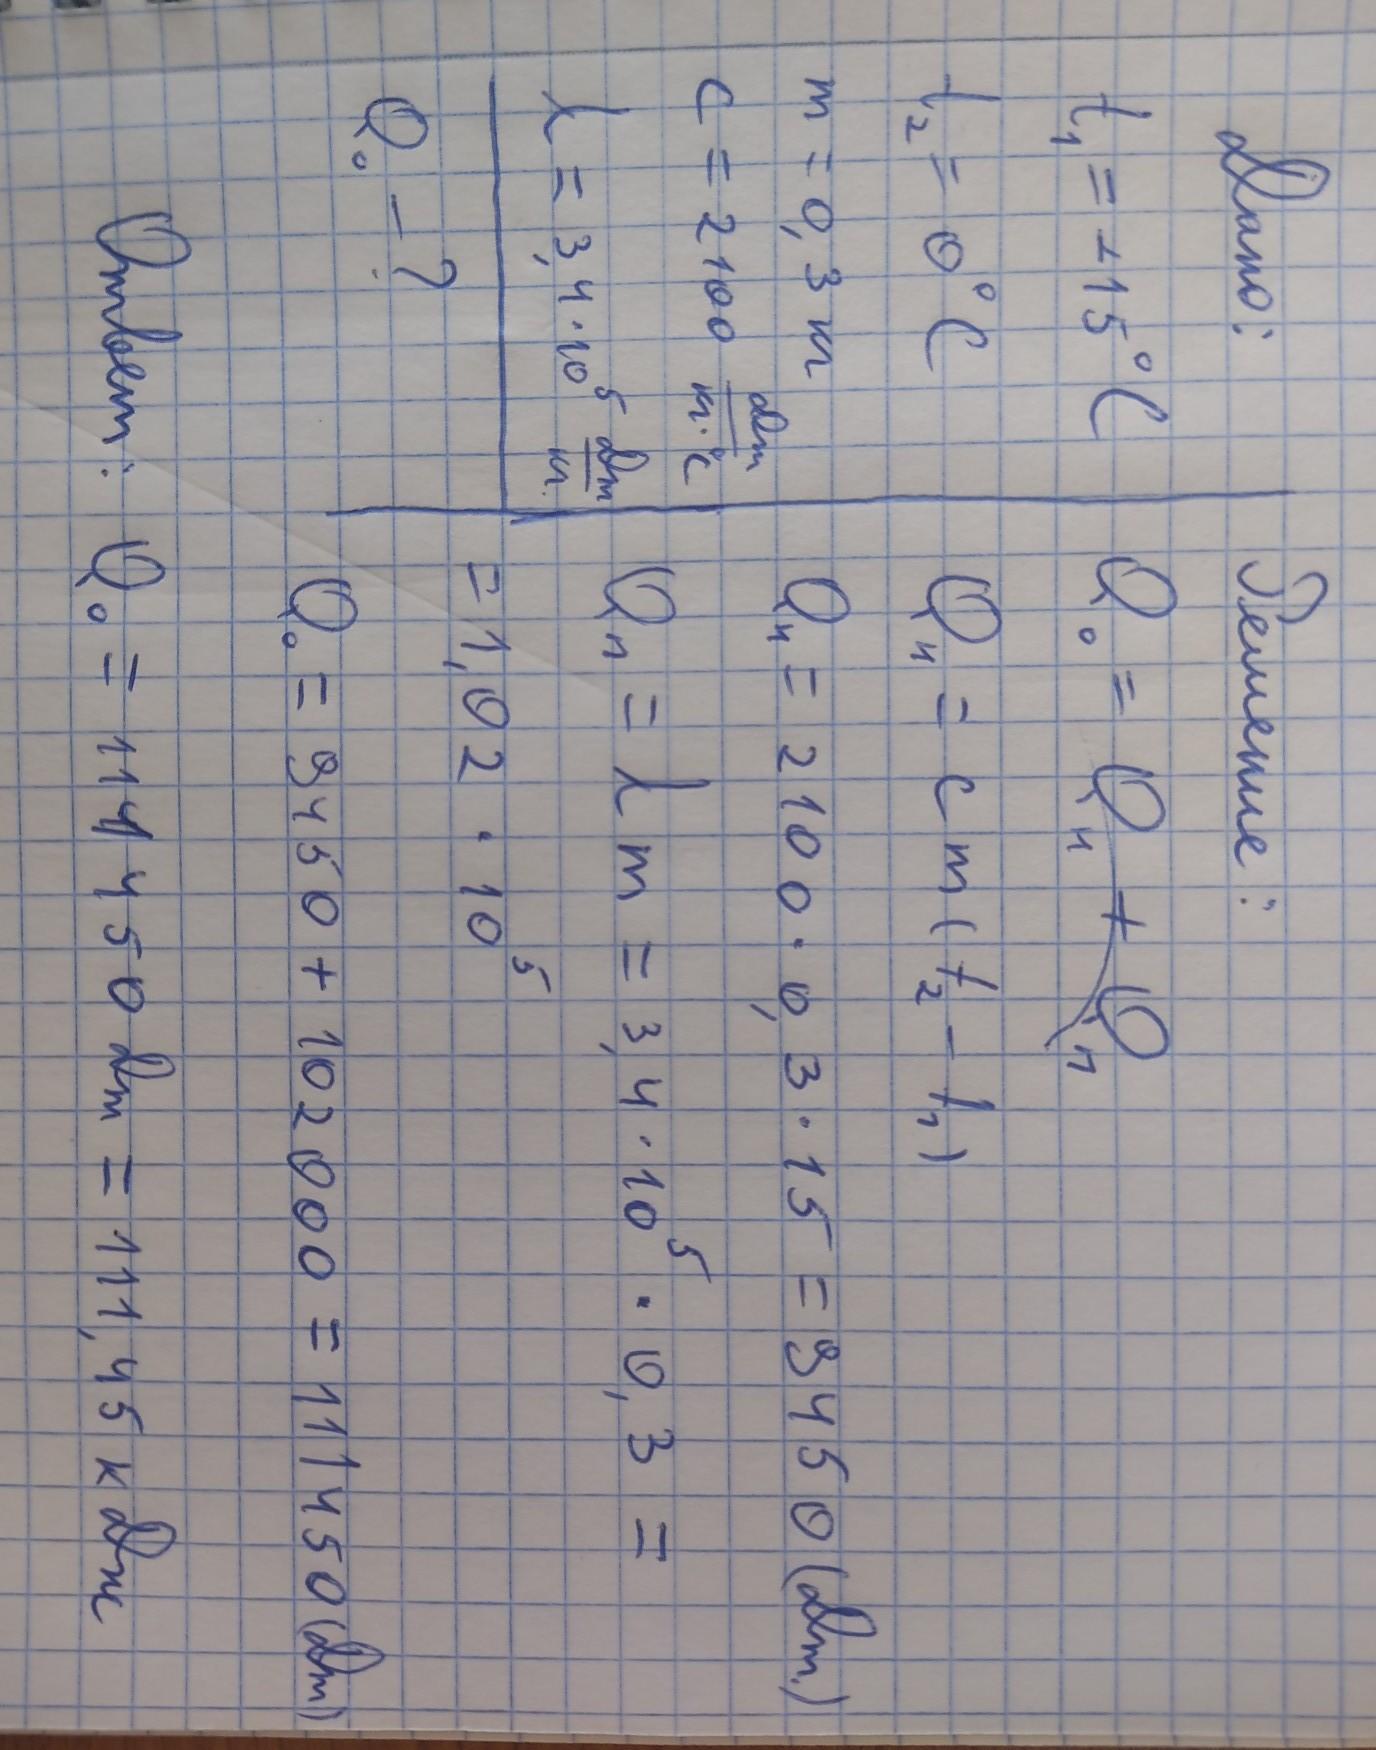 Дано:
t₁ = -15°C
t₂ = 0°C
m = 0,3 кг
c = 2100 Дж/кг·°C
λ = 3,4·10⁵ Дж/кг
Q₀ - ?
Решение:
Q₀ = Qн + Qп
Qн = cm(t₂ - t₁)
Qн = 2100·0,3·15 = 9450 (Дж)
Qп = λm = 3,4·10⁵·0,3 =
= 1,02·10⁵
Q₀ = 9450 + 102000 = 111450 (Дж)
Ответ: Q₀ = 111450 Дж = 111,45 кДж